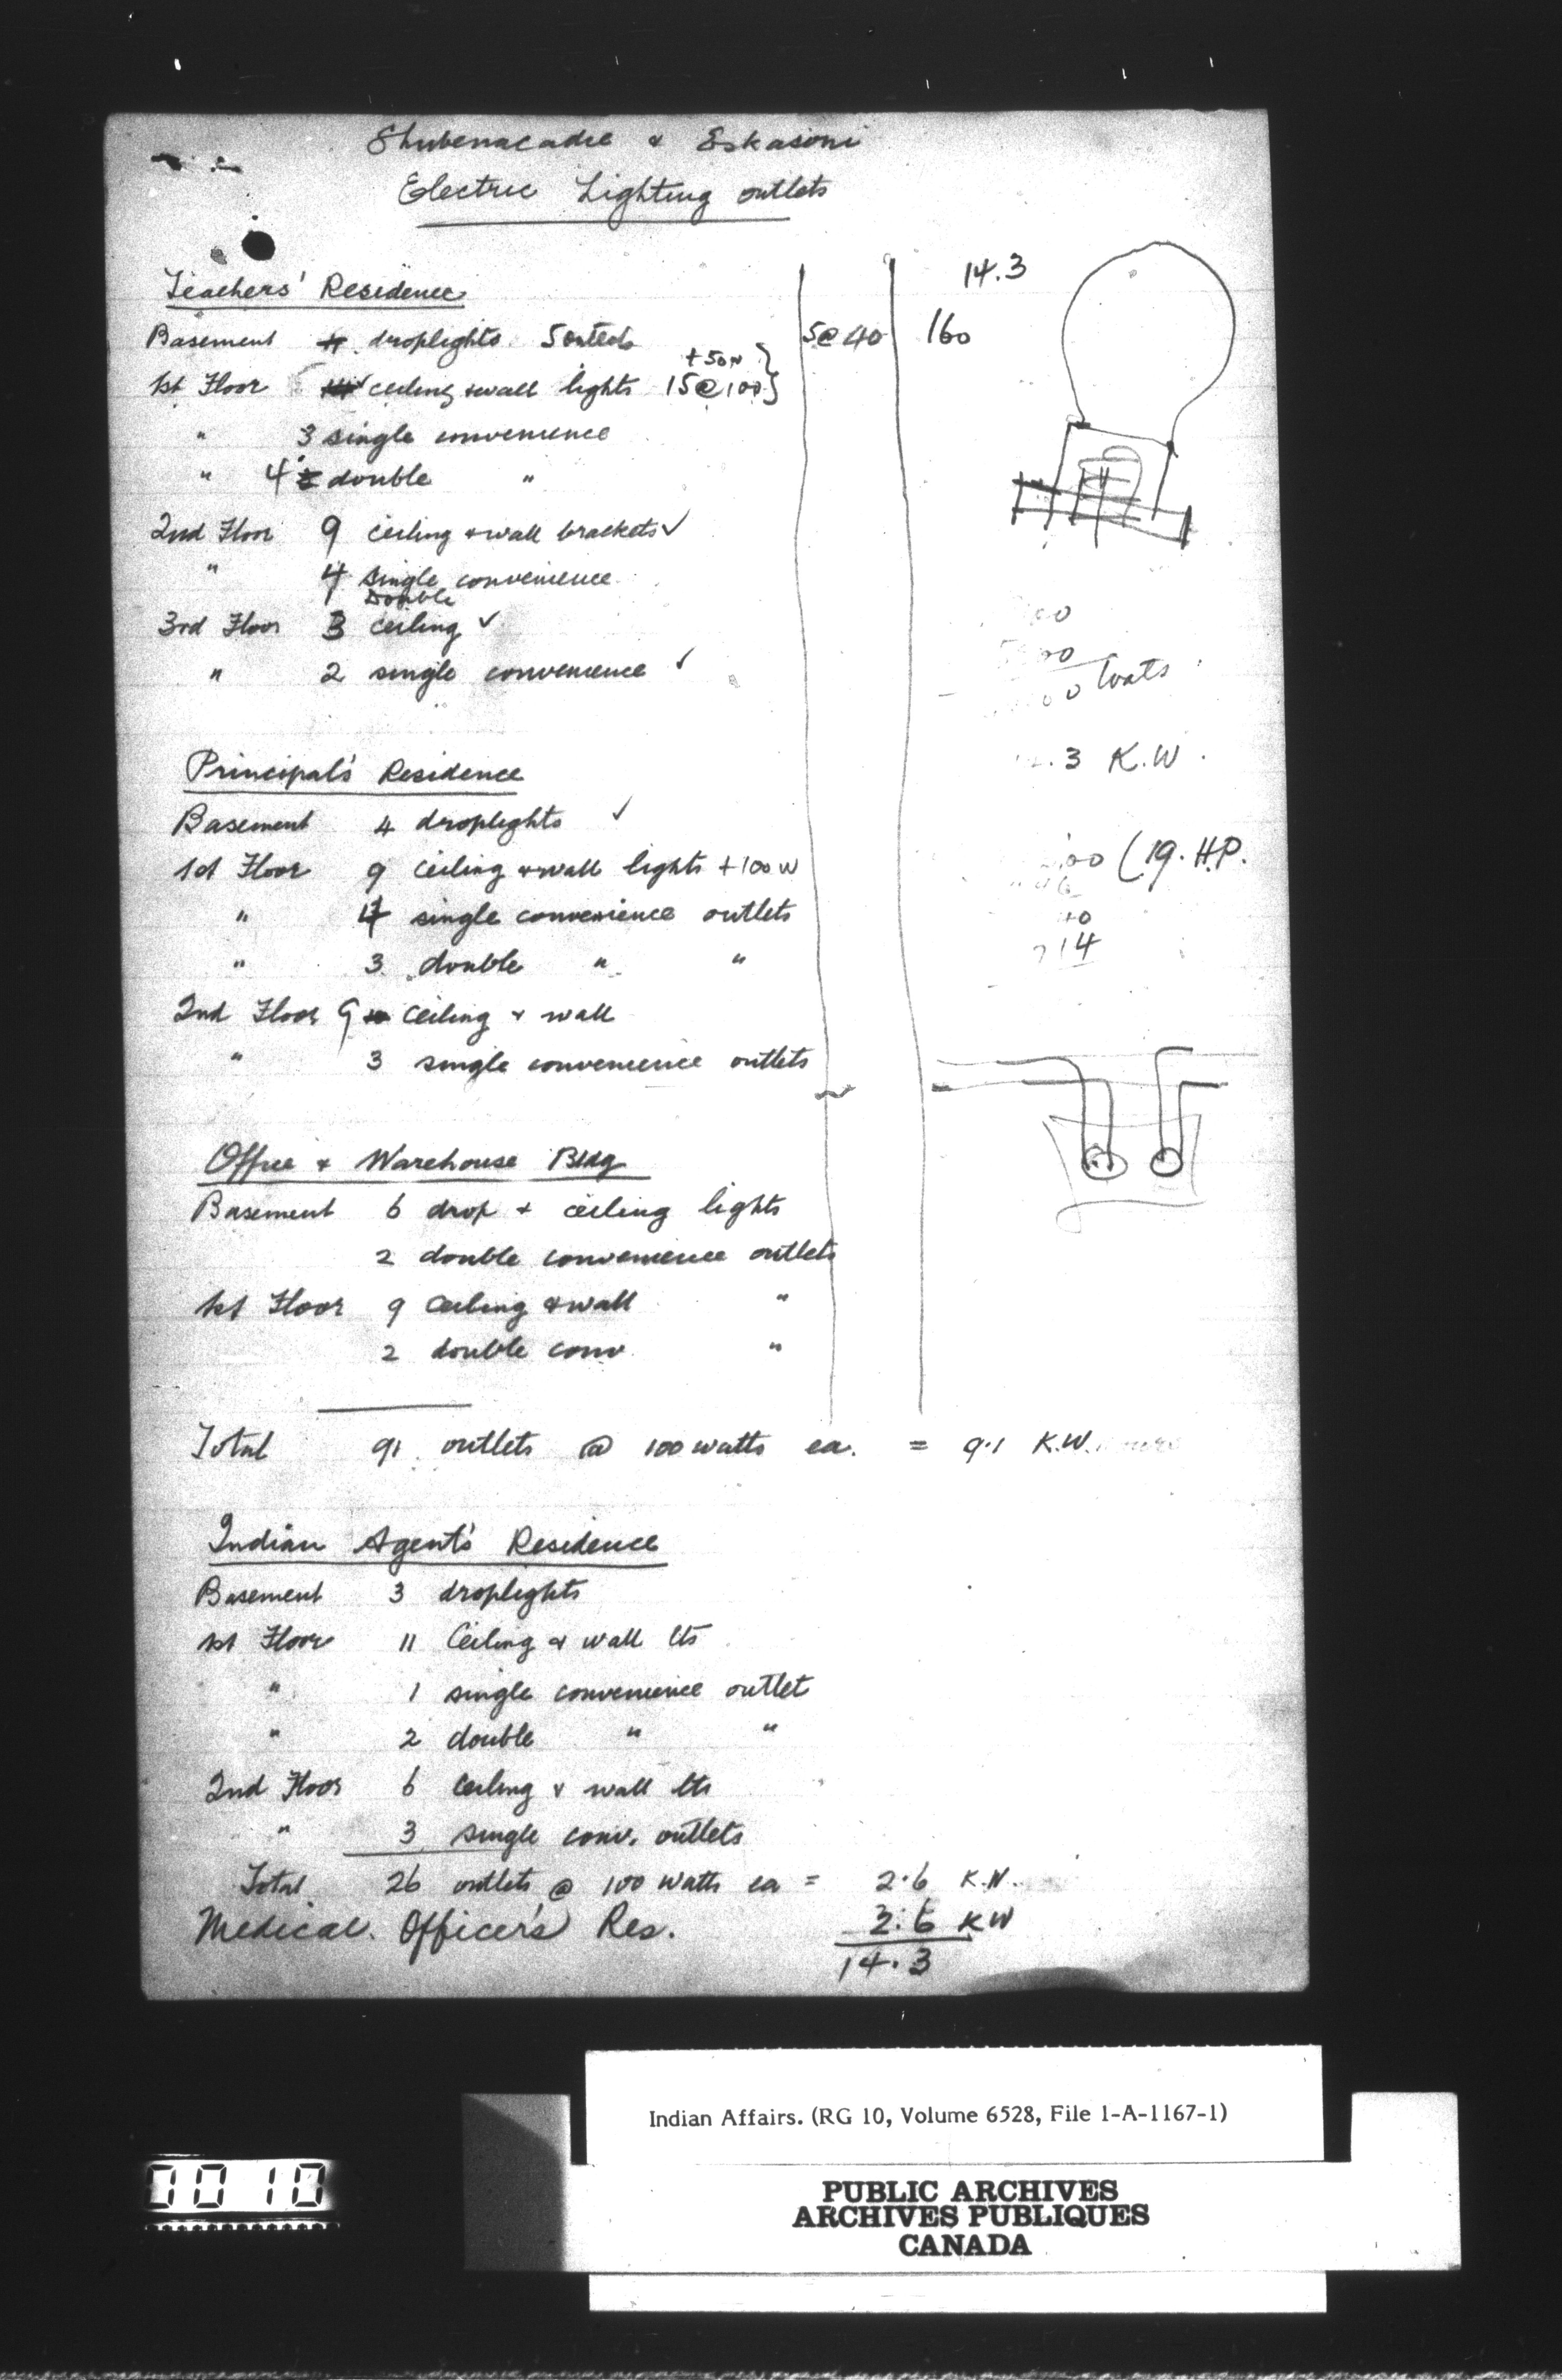 Shubenacadie & Eskasoni
Electric Lighting outlets
Teachers' Residence
14.3
Basement droplights 5 outlets 5@40 160
+50w
1st Floor ceiling & wall lights 15@100
" 3 single convenience
" 4 double "
2nd Floor 9 ceiling & wall brackets ✓
" 4 single convenience
1 Double
3rd Floor 3 ceiling ✓
" 2 single convenience ✓
watts
.3 K.W.
Principal's Residence
Basement 4 droplights ✓
1st Floor 9 ceiling & wall lights +100 w
(19. H.P.
" 4 single convenience outlets
" 3 double " "
14
2nd Floor 9 ceiling & wall
" 3 single convenience outlets
Office & Warehouse Bldg
Basement 6 drop & ceiling lights
2 double convenience outlets
1st Floor 9 ceiling & wall "
2 double conv "
Total 91 outlets @ 100 watts ea. = 9.1 K.W.
Indian Agent's Residence
Basement 3 droplights
1st Floor 11 Ceiling & wall lts
" 1 single convenience outlet
" 2 double " "
2nd Floor 6 ceiling & wall lts
" 3 single conv. outlets
Total 26 outlets @ 100 watts ea = 2.6 K.W.
Medical Officer's Res. 2.6 KW
14.3
Indian Affairs. (RG 10, Volume 6528, File 1-A-1167-1)
0010
PUBLIC ARCHIVES
ARCHIVES PUBLIQUES
CANADA